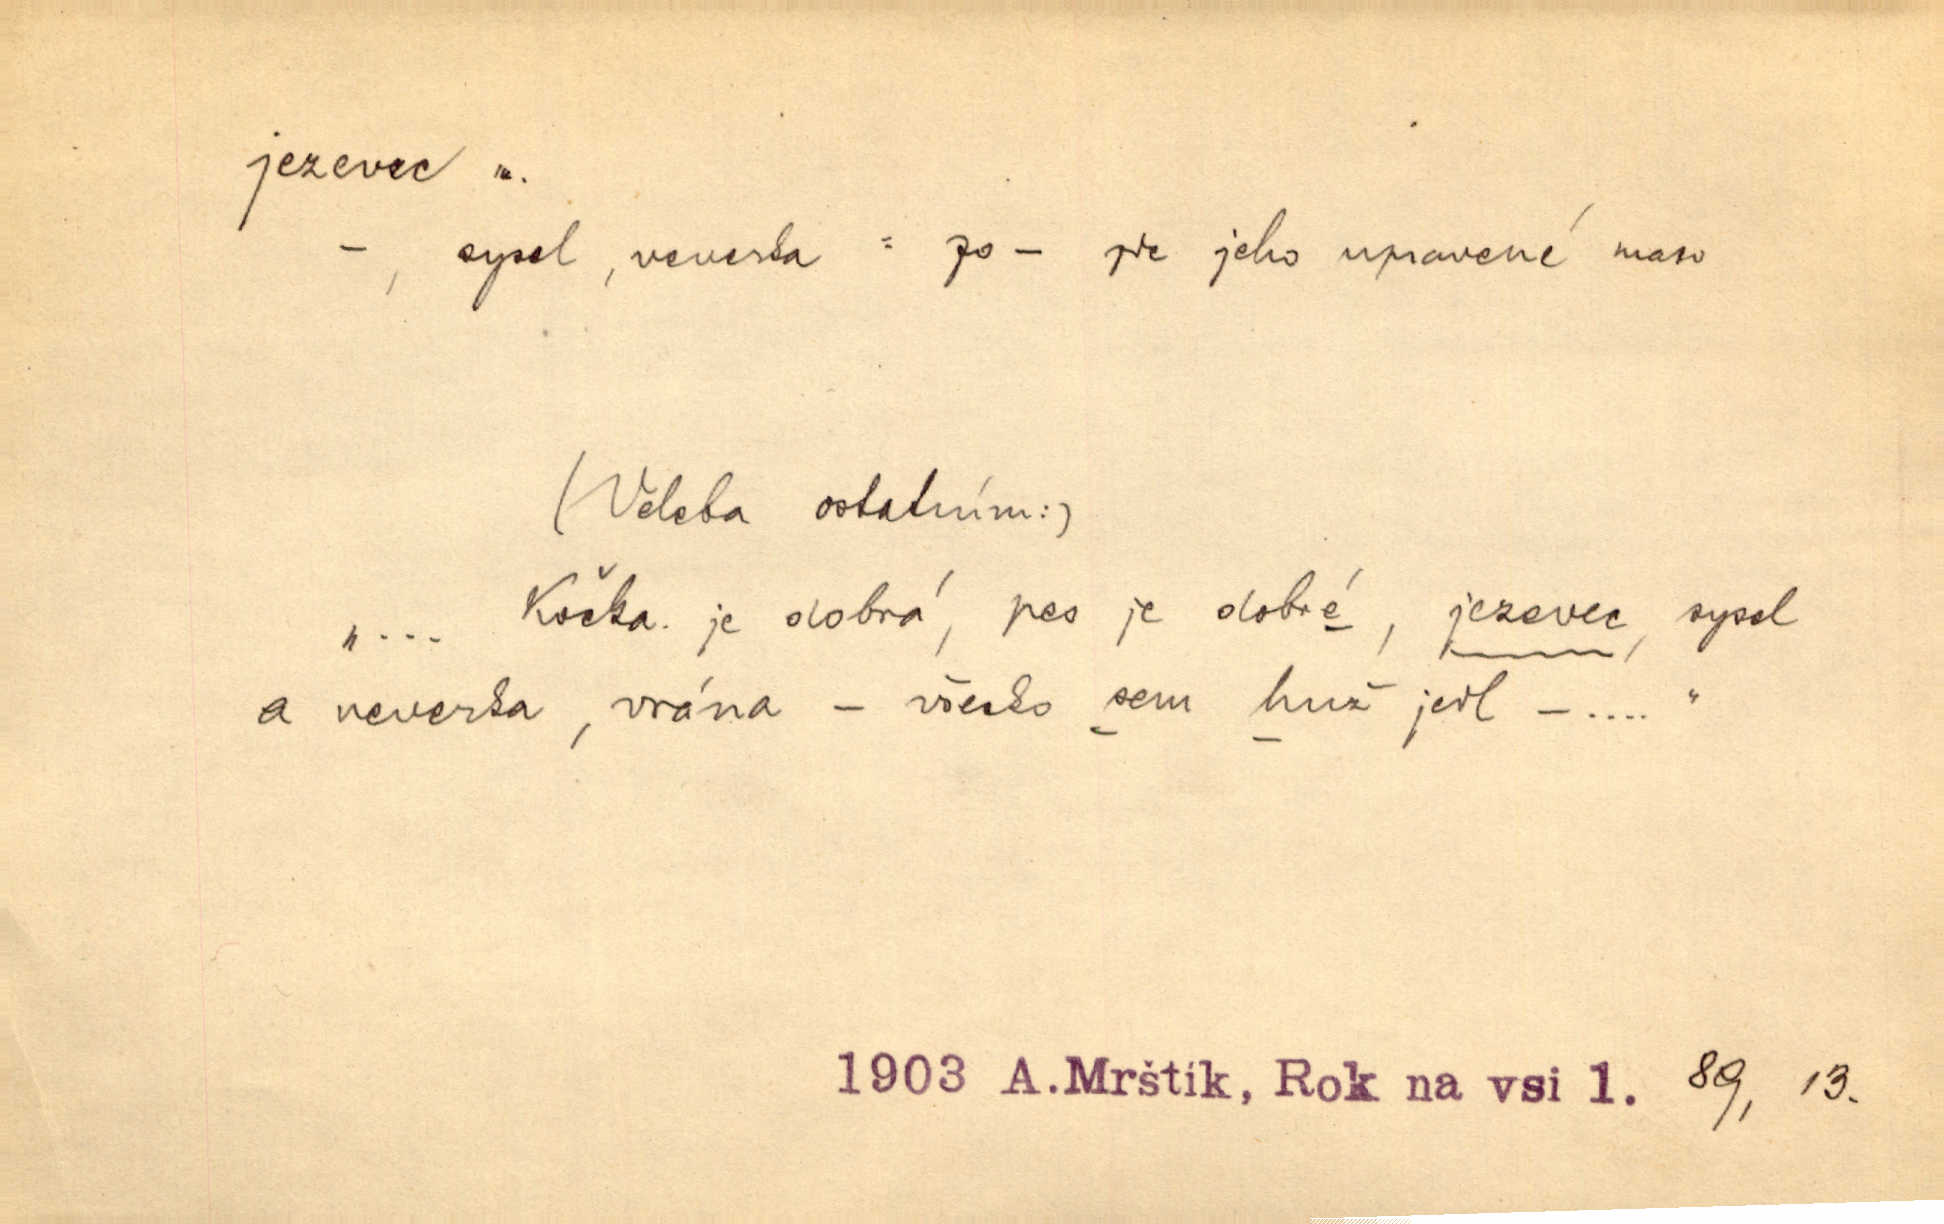 jezevec m.
–, sysel, veverka = po– zde jeho upravené maso
(Veleba ostatním:)
„... Kočka je dobrá, pes je dobré, jezevec, sysel
a veverka, vrána – všecko sem huž jedl – .... "
1903 A.Mrštík, Rok na vsi 1. 89, 13.